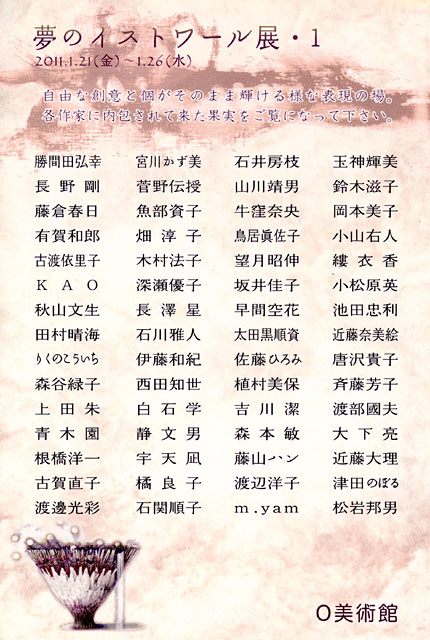 夢のイストワール展・1
2011.1.21(金)~1.26(水)
自由な創意と個がそのまま輝ける様な表現の場。
各作家に内包されて来た果実をご覧になって下さい。
勝間田弘幸 宮川かず美 石井房枝 玉神輝美
長野剛 菅野伝授 山川靖男 鈴木滋子
藤倉春日 魚部資子 牛窪奈央 岡本美子
有賀和郎 畑淳子 鳥居眞佐子 小山右人
古渡依里子 木村法子 望月昭伸 縷衣香
KAO 深瀬優子 坂井佳子 小松原英
秋山文生 長澤星 早間空花 池田忠利
田村晴海 石川雅人 太田黒順資 近藤奈美絵
りくのこういち 伊藤和紀 佐藤ひろみ 唐沢貴子
森谷緑子 西田知世 植村美保 斉藤芳子
上田朱 白石学 吉川潔 渡部國夫
青木園 静文男 森本敏 大下亮
根橋洋一 宇天凪 藤山ハン 近藤大理
古賀直子 橘良子 渡辺洋子 津田のぼる
渡邊光彩 石関順子 m.yam 松岩邦男
O美術館